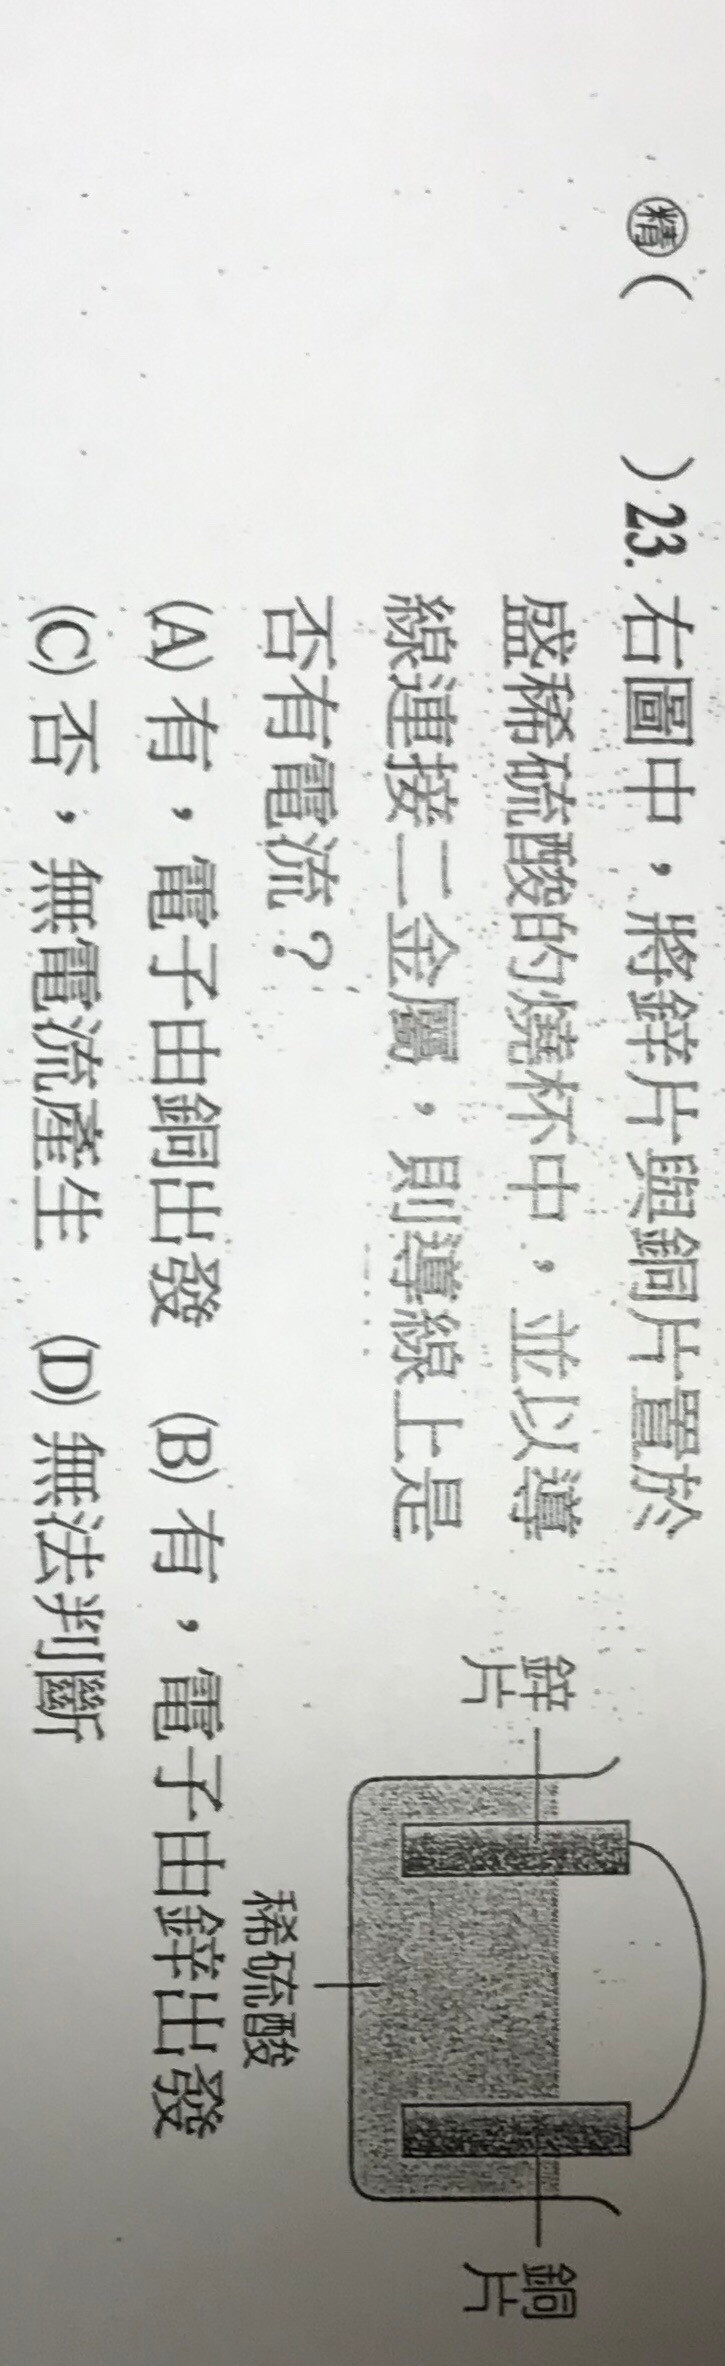 精(　　)23. 右圖中，將鋅片與銅片置於
盛稀硫酸的燒杯中，並以導
線連接二金屬，則導線上是
否有電流？
(A) 有，電子由銅出發　(B) 有，電子由鋅出發
(C) 否，無電流產生　(D) 無法判斷
鋅片
銅片
稀硫酸